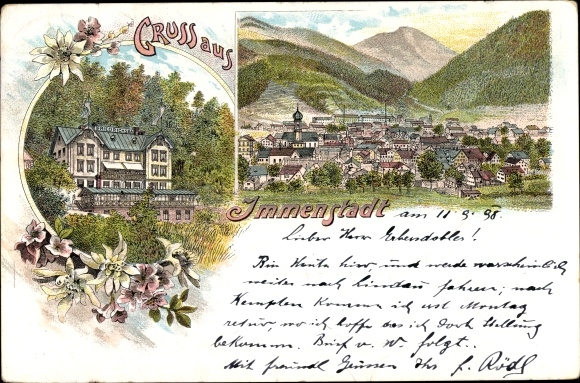 GRUSS aus
Immenstadt
am 11.9.98.
Lieber Herr
Bin Heute hier, und werde warscheinlich
weiter nach Lindau fahren; nach
Kempten komme ich erst Montag
retur, wo ich hoffe das ich dort Stellung
bekomm. Brief v. W. folgt..
Mit freundl Grüssen Ihr f. Rödl